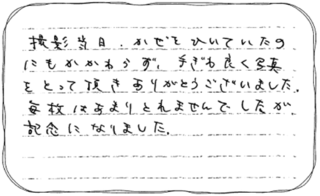 撮影当日、かぜをひいていたの
にもかかわらず、手ぎわ良く写真
をとって頂きありがとうございました。
毎枚はあまりとれませんでしたが
記念になりました。